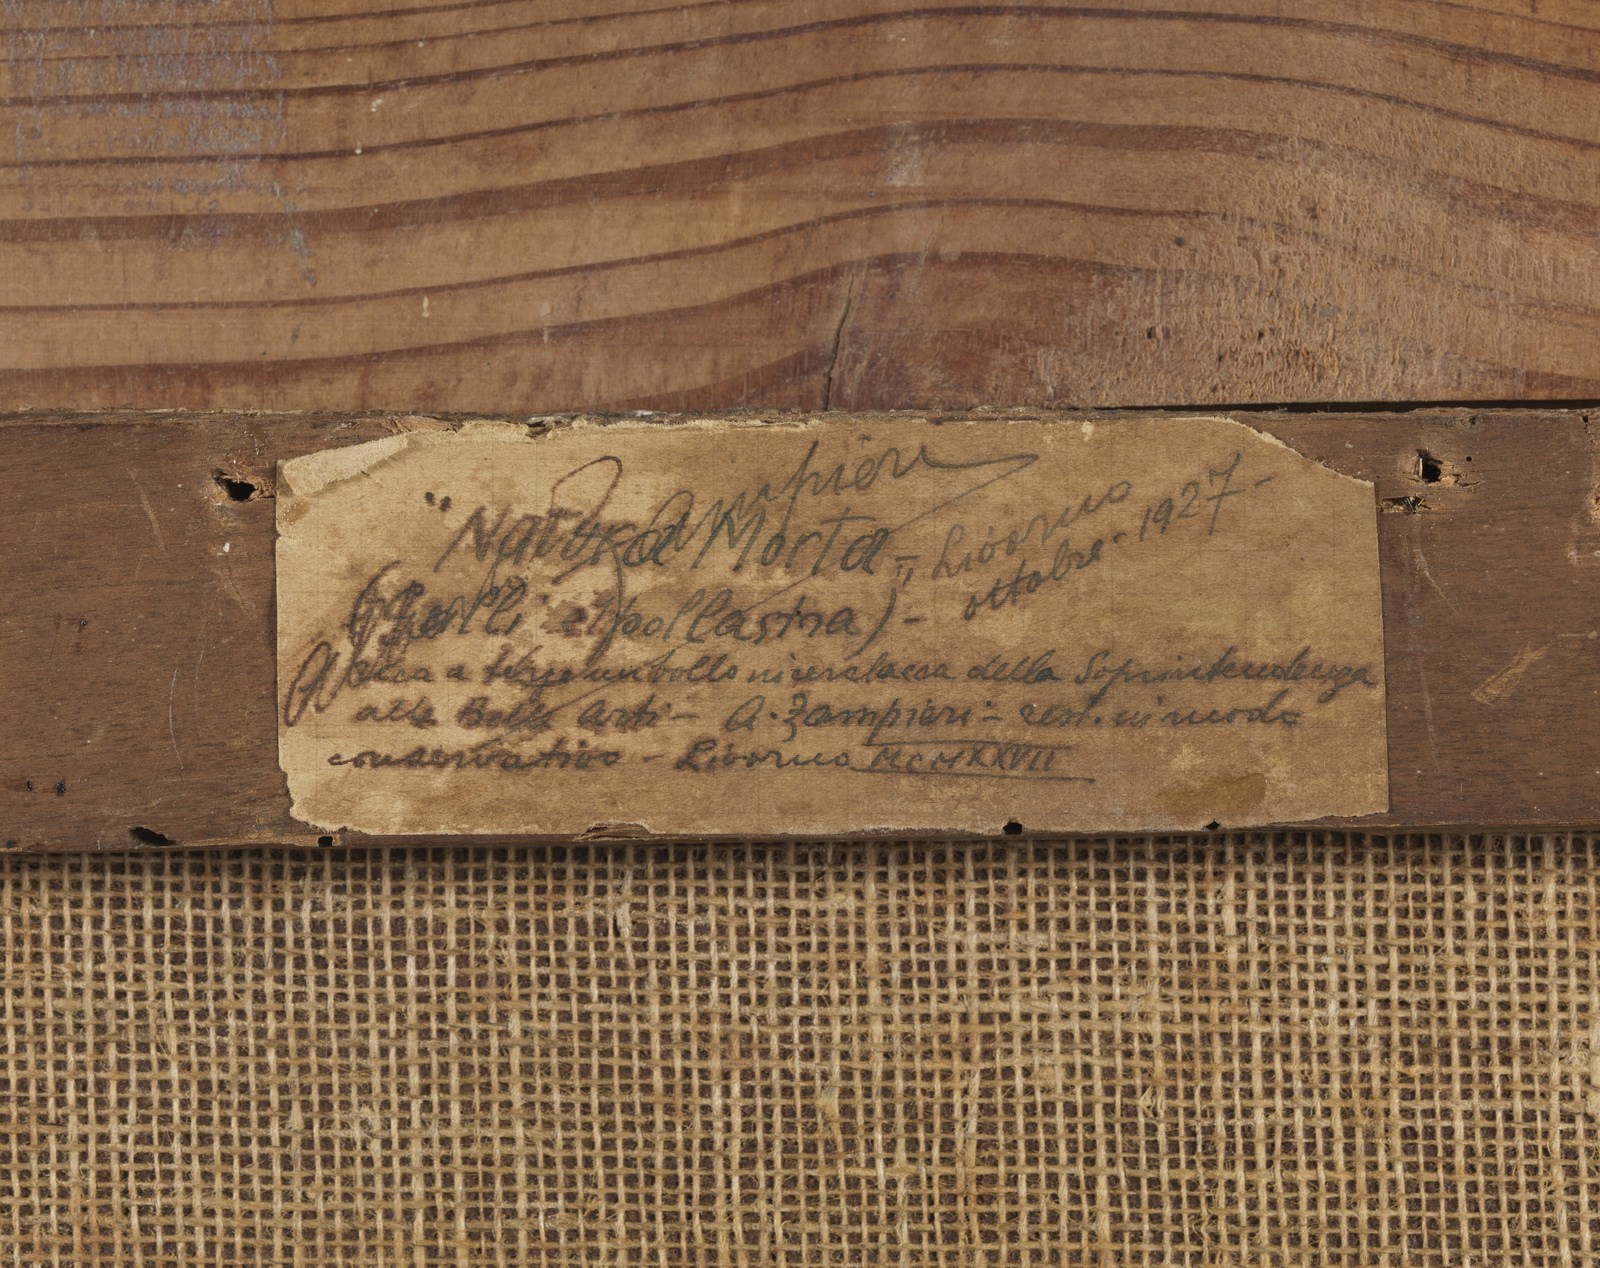 Zampieri
"Natura Morta",, Livorno
ottobre - 1927 -
(Galli e pollastra) -
a tergo un bollo in ceralacca della Soprintendenza
alle Belle Arti - A. Zampieri - rest. in modo
conservativo - Livorno MCMXXVII